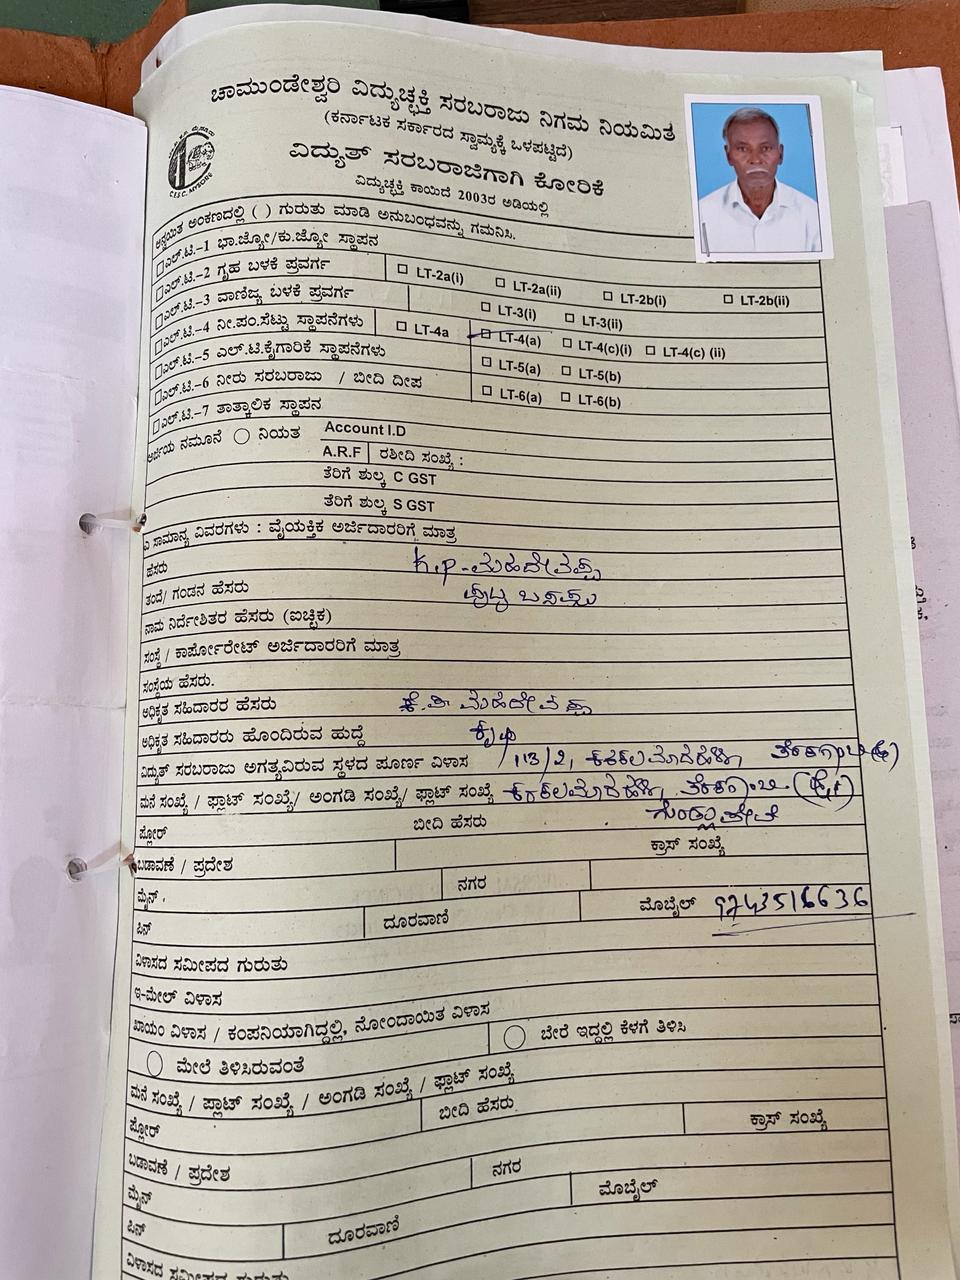 ಚಾಮುಂಡೇಶ್ವರಿ ವಿದ್ಯುಚ್ಛಕ್ತಿ ಸರಬರಾಜು ನಿಗಮ ನಿಯಮಿತ
(ಕರ್ನಾಟಕ ಸರ್ಕಾರದ ಸ್ವಾಮ್ಯಕ್ಕೆ ಒಳಪಟ್ಟಿದೆ)
ವಿದ್ಯುತ್ ಸರಬರಾಜಿಗಾಗಿ ಕೋರಿಕೆ
C.E.S.C. MYSORE
ವಿದ್ಯುಚ್ಛಕ್ತಿ ಕಾಯಿದೆ 2003ರ ಅಡಿಯಲ್ಲಿ
ಅನ್ವಯಿತ ಅಂಕಣದಲ್ಲಿ ( ) ಗುರುತು ಮಾಡಿ ಅನುಬಂಧವನ್ನು ಗಮನಿಸಿ.
ಎಲ್.ಟಿ.-1 ಭಾ.ಜ್ಯೋ/ಕು.ಜ್ಯೋ ಸ್ಥಾಪನ
ಎಲ್.ಟಿ.-2 ಗೃಹ ಬಳಕೆ ಪ್ರವರ್ಗ LT-2a(i) LT-2a(ii) LT-2b(i) LT-2b(ii)
ಎಲ್.ಟಿ.-3 ವಾಣಿಜ್ಯ ಬಳಕೆ ಪ್ರವರ್ಗ LT-3(i) LT-3(ii)
ಎಲ್.ಟಿ.-4 ನೀ.ಪಂ.ಸೆಟ್ಟು ಸ್ಥಾಪನೆಗಳು LT-4a LT-4(a) LT-4(c)(i) LT-4(c) (ii)
ಎಲ್.ಟಿ.-5 ಎಲ್.ಟಿ.ಕೈಗಾರಿಕೆ ಸ್ಥಾಪನೆಗಳು LT-5(a) LT-5(b)
ಎಲ್.ಟಿ.-6 ನೀರು ಸರಬರಾಜು / ಬೀದಿ ದೀಪ LT-6(a) LT-6(b)
ಎಲ್.ಟಿ.-7 ತಾತ್ಕಾಲಿಕ ಸ್ಥಾಪನ
ಅರ್ಜಿಯ ನಮೂನೆ ನಿಯತ Account I.D
A.R.F ರಶೀದಿ ಸಂಖ್ಯೆ :
ತೆರಿಗೆ ಶುಲ್ಕ C GST
ತೆರಿಗೆ ಶುಲ್ಕ S GST
ಎ ಸಾಮಾನ್ಯ ವಿವರಗಳು : ವೈಯಕ್ತಿಕ ಅರ್ಜಿದಾರರಿಗೆ ಮಾತ್ರ
ಹೆಸರು K.P-ಮಹದೇವಪ್ಪ
ತಂದೆ/ ಗಂಡನ ಹೆಸರು
ನಾಮ ನಿರ್ದೇಶಿತರ ಹೆಸರು (ಐಚ್ಛಿಕ)
ಸಂಸ್ಥೆ / ಕಾರ್ಪೊರೇಟ್ ಅರ್ಜಿದಾರರಿಗೆ ಮಾತ್ರ
ಸಂಸ್ಥೆಯ ಹೆಸರು.
ಅಧಿಕೃತ ಸಹಿದಾರರ ಹೆಸರು ಕೆ.ಪಿ ಮಹದೇವಪ್ಪ
ಅಧಿಕೃತ ಸಹಿದಾರರು ಹೊಂದಿರುವ ಹುದ್ದೆ ಕೃಷಿ
ವಿದ್ಯುತ್ ಸರಬರಾಜು ಅಗತ್ಯವಿರುವ ಸ್ಥಳದ ಪೂರ್ಣ ವಿಳಾಸ
ಮನೆ ಸಂಖ್ಯೆ / ಫ್ಲಾಟ್ ಸಂಖ್ಯೆ/ ಅಂಗಡಿ ಸಂಖ್ಯೆ/ ಫ್ಲಾಟ್ ಸಂಖ್ಯೆ
ಗುಂಡ್ಲುಪೇಟೆ
ಫ್ಲೋರ್ ಬೀದಿ ಹೆಸರು ಕ್ರಾಸ್ ಸಂಖ್ಯೆ
ಬಡಾವಣೆ / ಪ್ರದೇಶ
ಮೈನ್ ನಗರ
ಪಿನ್ ದೂರವಾಣಿ ಮೊಬೈಲ್ 9743516636
ವಿಳಾಸದ ಸಮೀಪದ ಗುರುತು
ಇ-ಮೇಲ್ ವಿಳಾಸ
ಖಾಯಂ ವಿಳಾಸ / ಕಂಪನಿಯಾಗಿದ್ದಲ್ಲಿ, ನೋಂದಾಯಿತ ವಿಳಾಸ
ಮೇಲೆ ತಿಳಿಸಿರುವಂತೆ ಬೇರೆ ಇದ್ದಲ್ಲಿ ಕೆಳಗೆ ತಿಳಿಸಿ
ಮನೆ ಸಂಖ್ಯೆ / ಪ್ಲಾಟ್ ಸಂಖ್ಯೆ / ಅಂಗಡಿ ಸಂಖ್ಯೆ / ಫ್ಲಾಟ್ ಸಂಖ್ಯೆ
ಫ್ಲೋರ್ ಬೀದಿ ಹೆಸರು ಕ್ರಾಸ್ ಸಂಖ್ಯೆ
ಬಡಾವಣೆ / ಪ್ರದೇಶ ನಗರ
ಮೈನ್ ಮೊಬೈಲ್
ಪಿನ್ ದೂರವಾಣಿ
ವಿಳಾಸದ ಸಮೀಪದ ಗುರುತು